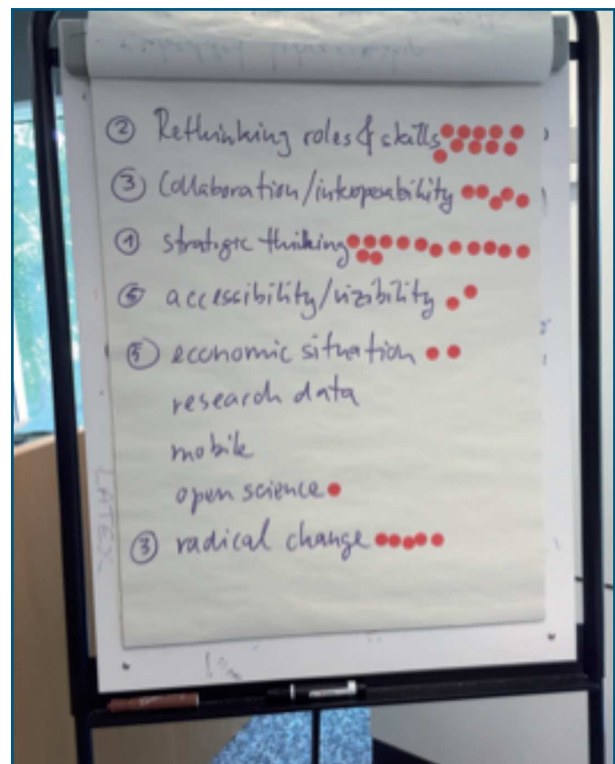 ② Rethinking roles & skills
③ Collaboration/interoperability
① strategic thinking
⑤ accessibility/visibility
⑤ economic situation
research data
mobile
open science
③ radical change
LATEX